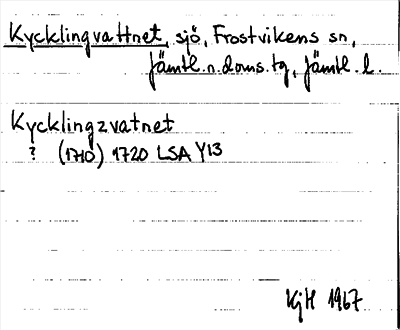 Kycklingvattnet, sjö, Frostvikens sn,
Jämtl. n. doms. tg, Jämtl. l.
Kycklingzvatnet
? (1710) 1720 LSA Y13
KjH 1967